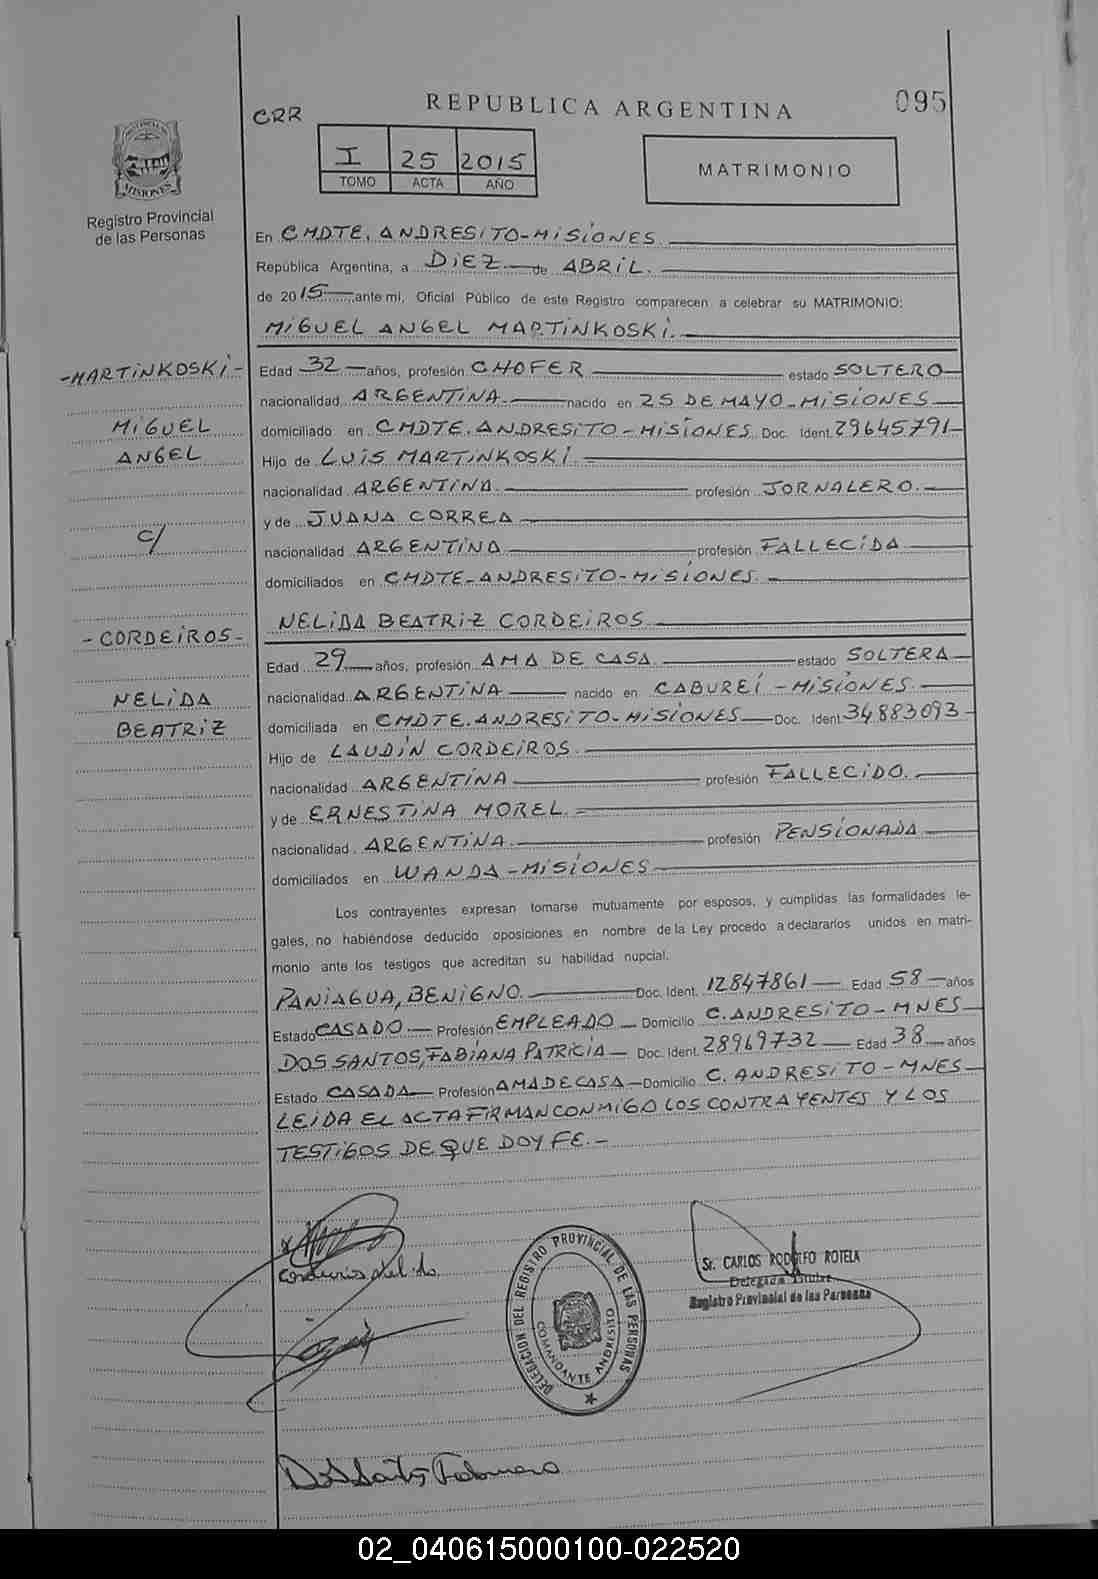 REPUBLICA ARGENTINA
095
CRR
I 25 2015
TOMO ACTA AÑO
MATRIMONIO
PROVINCIA DE MISIONES
Registro Provincial
de las Personas
En CMDTE. ANDRESITO-MISIONES
República Argentina, a DIEZ de ABRIL.
de 2015 ante mi, Oficial Público de este Registro comparecen a celebrar su MATRIMONIO:
MIGUEL ANGEL MARTINKOSKI.
-MARTINKOSKI-
MIGUEL
ANGEL
C/
-CORDEIROS-
NELIDA
BEATRIZ
Edad 32 años, profesión CHOFER estado SOLTERO
nacionalidad ARGENTINA. nacido en 25 DE MAYO-MISIONES
domiciliado en CMDTE. ANDRESITO-MISIONES Doc. Ident. 29645791-
Hijo de LUIS MARTINKOSKI.
nacionalidad ARGENTINA. profesión JORNALERO.
y de JUANA CORREA
nacionalidad ARGENTINA profesión FALLECIDA
domiciliados en CMDTE-ANDRESITO-MISIONES.
NELIDA BEATRIZ CORDEIROS
Edad 29 años, profesión AMA DE CASA estado SOLTERA
nacionalidad ARGENTINA nacido en CABUREÍ-MISIONES.
domiciliada en CMDTE. ANDRESITO-MISIONES Doc. Ident. 34883093-
Hijo de LAUDIN CORDEIROS.
nacionalidad ARGENTINA profesión FALLECIDO.
y de ERNESTINA MOREL.
nacionalidad ARGENTINA. profesión PENSIONADA
domiciliados en WANDA-MISIONES
Los contrayentes expresan tomarse mutuamente por esposos, y cumplidas las formalidades le-
gales, no habiéndose deducido oposiciones en nombre de la Ley procedo a declararlos unidos en matri-
monio ante los testigos que acreditan su habilidad nupcial.
PANIAGUA, BENIGNO. Doc. Ident. 12847861 Edad 58 años
Estado CASADO Profesión EMPLEADO Domicilio C. ANDRESITO-MNES
DOS SANTOS, FABIANA PATRICIA Doc. Ident. 28969732 Edad 38 años
Estado CASADA Profesión AMA DE CASA Domicilio C. ANDRESITO-MNES
LEIDA EL ACTA FIRMAN CONMIGO LOS CONTRAYENTES Y LOS
TESTIGOS DE QUE DOY FE.-
DELEGACION DEL REGISTRO PROVINCIAL DE LAS PERSONAS
COMANDANTE ANDRESITO
Sr. CARLOS RODOLFO ROTELA
Delegado Titular
Registro Provincial de las Personas
Dos Santos Fabiana
02_040615000100-022520